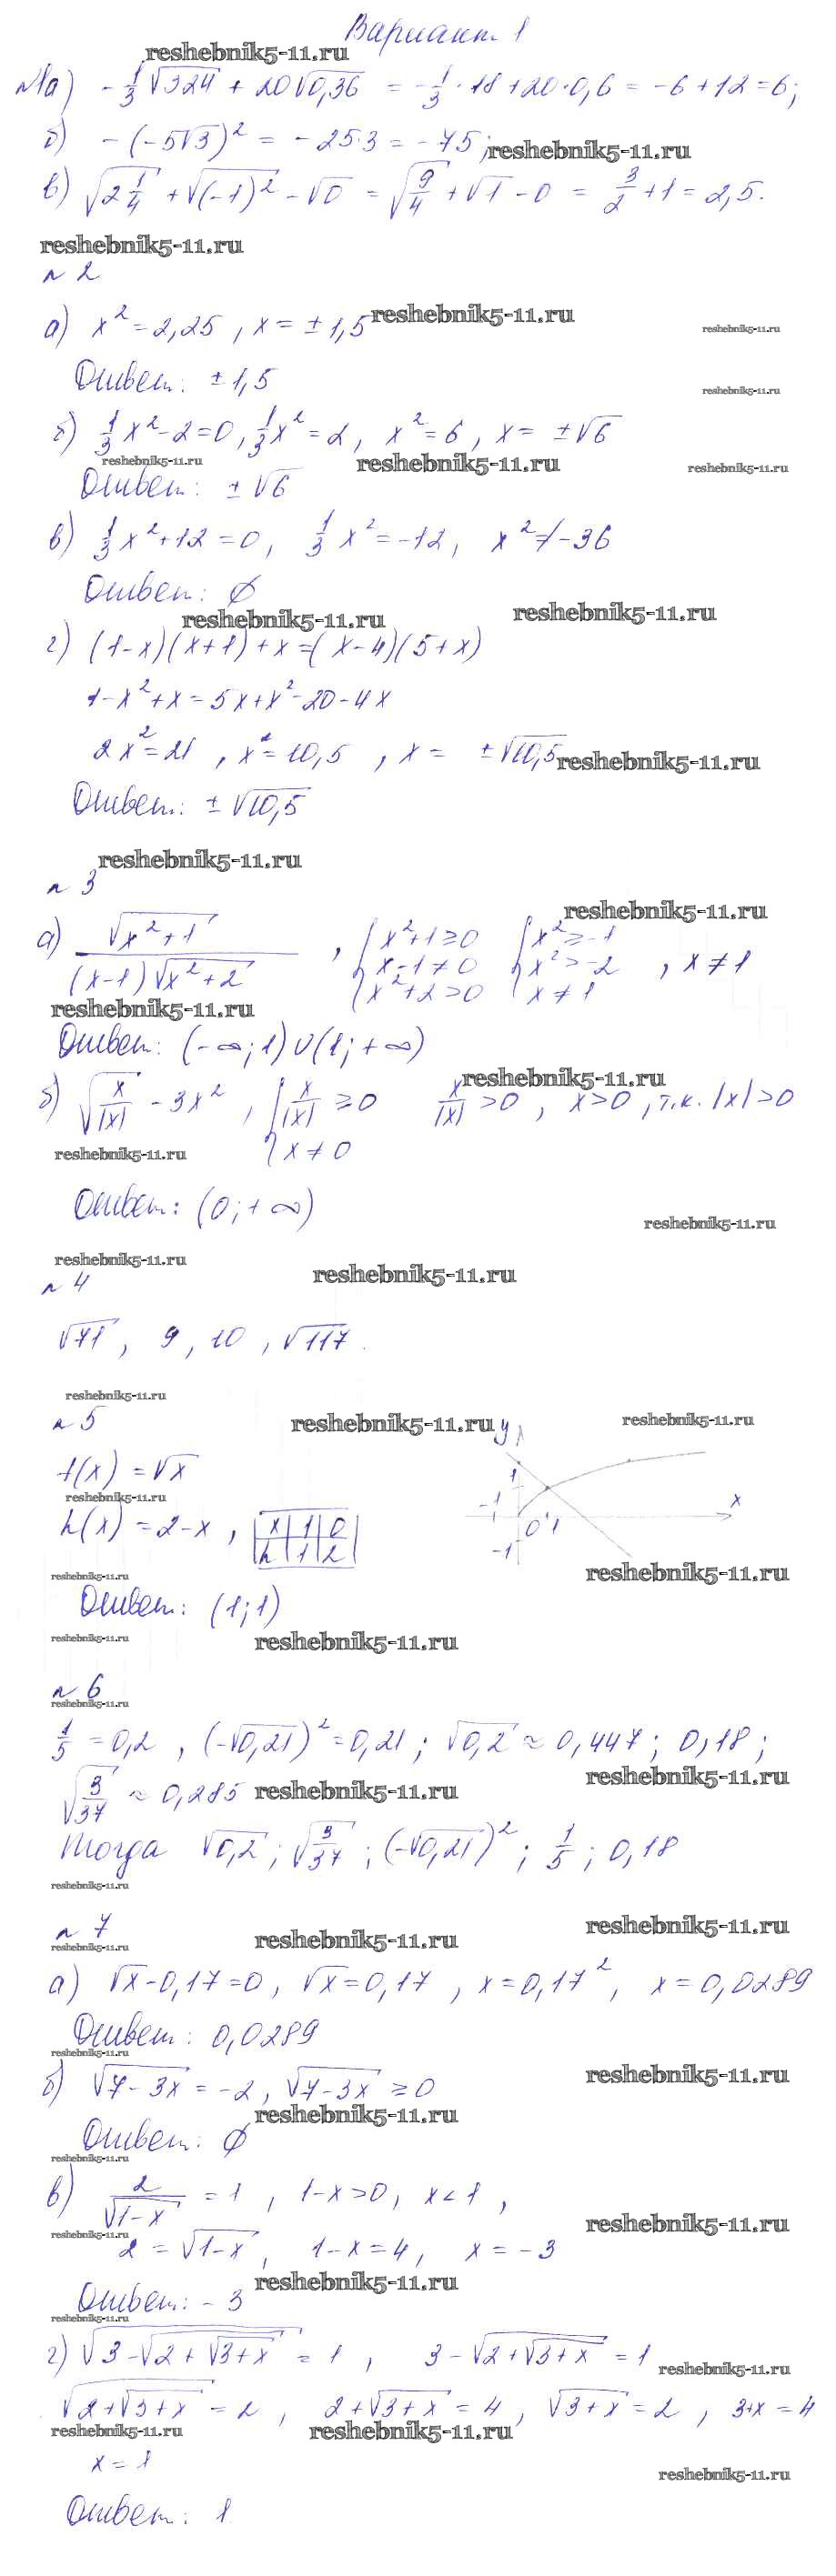 Вариант 1
reshebnik5-11.ru
№1а) -1/3 √324 + 20√0,36 = -1/3 · 18 + 20 · 0,6 = -6 + 12 = 6;
б) -(-5√3)² = -25·3 = -75; reshebnik5-11.ru
в) √(2 1/4) + √((-1)²) - √0 = √(9/4) + √1 - 0 = 3/2 + 1 = 2,5.
reshebnik5-11.ru
№ 2
а) x² = 2,25, x = ±1,5 reshebnik5-11.ru
reshebnik5-11.ru
Ответ: ±1,5
reshebnik5-11.ru
б) 1/3 x² - 2 = 0, 1/3 x² = 2, x² = 6, x = ±√6
reshebnik5-11.ru reshebnik5-11.ru reshebnik5-11.ru
Ответ: ±√6
в) 1/3 x² + 12 = 0, 1/3 x² = -12, x² ≠ -36
Ответ: ∅
reshebnik5-11.ru reshebnik5-11.ru
г) (1-x)(x+1) + x = (x-4)(5+x)
1 - x² + x = 5x + x² - 20 - 4x
2x² = 21, x² = 10,5, x = ±√10,5 reshebnik5-11.ru
Ответ: ±√10,5
reshebnik5-11.ru
№ 3
reshebnik5-11.ru
а) √(x²+1) / ((x-1)√(x²+2)), { x²+1≥0 x-1≠0 x²+2>0 { x²≥-1 x²>-2 x≠1, x≠1
reshebnik5-11.ru
Ответ: (-∞; 1)∪(1; +∞)
reshebnik5-11.ru
б) √(x/|x|) - 3x², { x/|x| ≥ 0 x≠0 x/|x| > 0, x>0, т.к. |x|>0
reshebnik5-11.ru
Ответ: (0; +∞)
reshebnik5-11.ru
reshebnik5-11.ru reshebnik5-11.ru
№ 4
√71, 9, 10, √117.
reshebnik5-11.ru
№ 5 reshebnik5-11.ru y reshebnik5-11.ru
f(x) = √x
1
reshebnik5-11.ru -1 x
h(x) = 2-x, x 1 0
h 1 2
0 1
-1
reshebnik5-11.ru reshebnik5-11.ru
Ответ: (1; 1)
reshebnik5-11.ru reshebnik5-11.ru
№ 6
reshebnik5-11.ru
1/5 = 0,2, (-√0,21)² = 0,21; √0,2 ≈ 0,447; 0,18;
√(3/37) ≈ 0,285 reshebnik5-11.ru reshebnik5-11.ru
Тогда √0,2; √(3/37); (-√0,21)²; 1/5; 0,18
reshebnik5-11.ru
№ 7
reshebnik5-11.ru reshebnik5-11.ru reshebnik5-11.ru
а) √x - 0,17 = 0, √x = 0,17, x = 0,17², x = 0,0289
Ответ: 0,0289
reshebnik5-11.ru
б) √(7-3x) = -2, √(7-3x) ≥ 0 reshebnik5-11.ru
reshebnik5-11.ru
Ответ: ∅
reshebnik5-11.ru
в) 2/√(1-x) = 1, 1-x>0, x<1,
reshebnik5-11.ru reshebnik5-11.ru
2 = √(1-x), 1-x = 4, x = -3
reshebnik5-11.ru
Ответ: -3
reshebnik5-11.ru
г) √(3-√(2+√(3+x))) = 1, 3-√(2+√(3+x)) = 1
reshebnik5-11.ru
√(2+√(3+x)) = 2, 2+√(3+x) = 4, √(3+x) = 2, 3+x = 4
reshebnik5-11.ru reshebnik5-11.ru
x = 1
reshebnik5-11.ru
Ответ: 1.